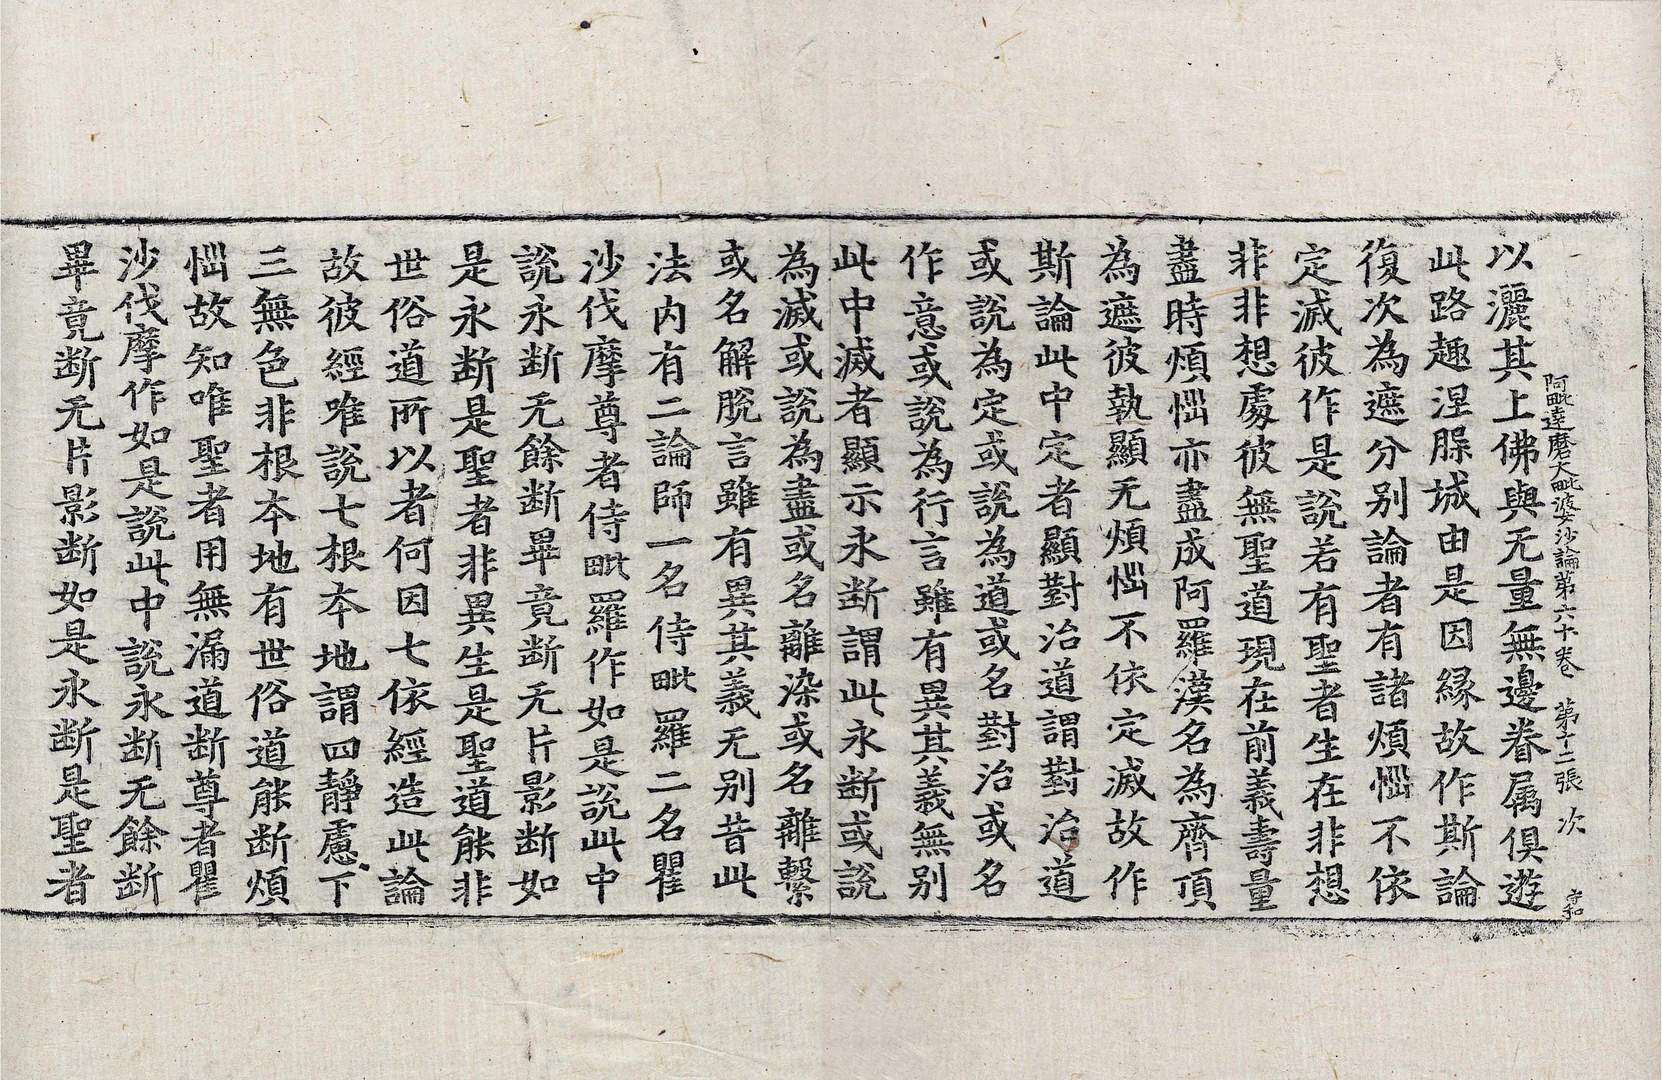 阿毗達磨大毗婆沙論第六十卷 第十二張 次
以灑其上佛與无量無邊眷属俱遊
此路趣涅槃城由是因縁故作斯論
復次為遮分别論者有諸煩惱不依
定滅彼作是說若有聖者生在非想
非非想處彼無聖道現在前義壽量
盡時煩惱亦盡成阿羅漢名為齊頂
為遮彼執顯无煩惱不依定滅故作
斯論此中定者顯對治道謂對治道
或說為定或說為道或名對治或名
作意或說為行言雖有異其義無别
此中滅者顯示永断謂此永断或說
為滅或說為盡或名離染或名離繫
或名解脫言雖有異其義无别昔此
法内有二論師一名侍毗羅二名瞿
沙伐摩尊者侍毗羅作如是說此中
說永断无餘断畢竟断无片影断如
是永断是聖者非異生是聖道能非
世俗道所以者何因七依經造此論
故彼經唯說七根本地謂四靜慮下
三無色非根本地有世俗道能断煩
惱故知唯聖者用無漏道断尊者瞿
沙伐摩作如是說此中說永断无餘断
畢竟断无片影断如是永断是聖者